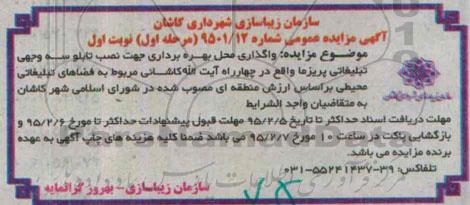 سازمان زیباسازی شهرداری کاشان
آگهی مزایده عمومی شماره 9501/12 (مرحله اول) نوبت اول
موضوع مزایده: واگذاری محل بهره برداری جهت نصب تابلو سه وجهی
تبلیغاتی پریزما واقع در چهارراه آیت الله کاشانی مربوط به فضاهای تبلیغاتی
محیطی براساس ارزش منطقه ای مصوب شده در شورای اسلامی شهر کاشان
به متقاضیان واجد الشرایط
مهلت دریافت اسناد حداکثر تا تاریخ 95/2/5 مهلت قبول پیشنهادات حداکثر تا مورخ 95/2/6 و
بازگشایی پاکت در ساعت 10 مورخ 95/2/7 می باشد ضمنا کلیه هزینه های چاپ آگهی به عهده
برنده مزایده می باشد.
تلفاکس: 39-55241437-031
سازمان زیباسازی - بهروز گرانمایه